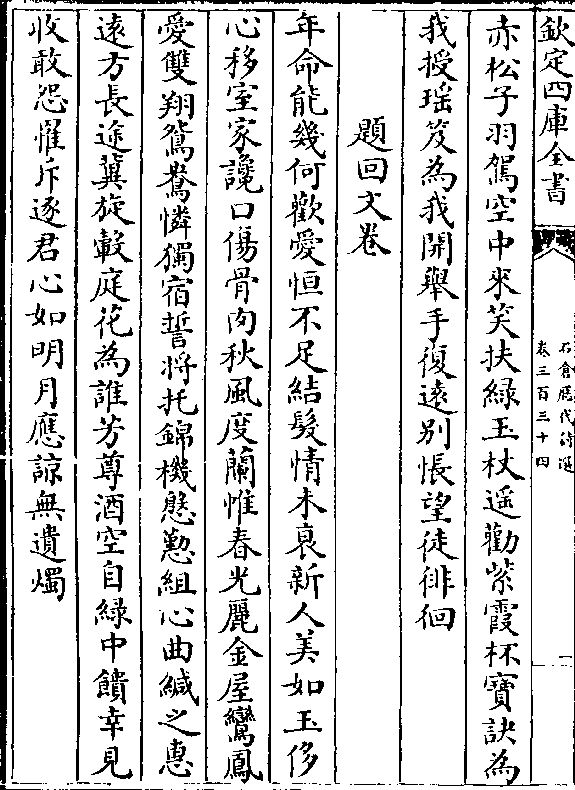 欽定四庫全書
石倉歷代詩選
卷三百三十四
一
赤松子羽駕空中來笑扶綠玉杖遥勸紫霞杯寶訣為
我授瑶笈為我開舉手復遠别悵望徒徘徊
題回文卷
年命能幾何歡愛恒不足結髮情未衰新人美如玉侈
心移室家讒口傷骨肉秋風度蘭帷春光麗金屋鸞鳳
愛雙翔鴛鴦憐獨宿誓将托錦機慇懃組心曲緘之惠
逺方長途冀旋轂庭花為誰芳尊酒空自緑中饋幸見
收敢怨惟斥逐君心如明月應諒無遺燭